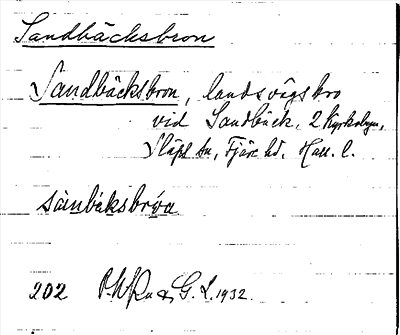 Sandbäcksbron
Sandbäcksbron, landsvägsbro
vid Sandbäck, 2 Kyrkobyn,
Släps sn, Fjäre hd. Hall. l.
sànbàksbróṇa
202 P.W. & G. L. 1932.